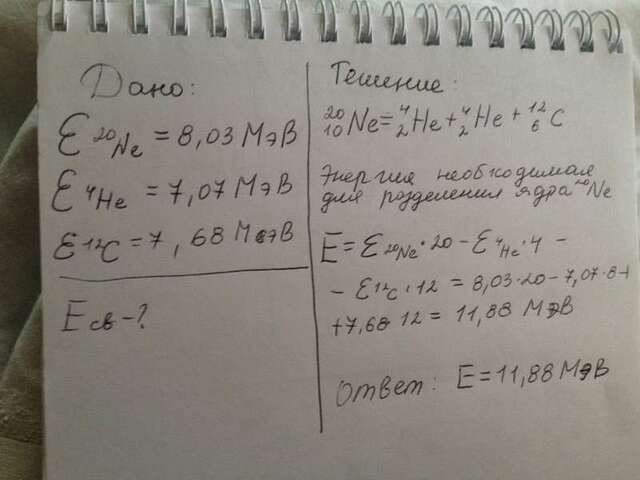 Дано:
Ɛ ²⁰Ne = 8,03 МэВ
Ɛ ⁴He = 7,07 МэВ
Ɛ ¹²C = 7, 68 МэВ
E св - ?
Решение:
²⁰₁₀Ne = ⁴₂He + ⁴₂He + ¹²₆C
Энергия необходимая
для разделения ядра ²⁰Ne
E = Ɛ ²⁰Ne · 20 - Ɛ ⁴He · 4 -
- Ɛ ¹²C · 12 = 8,03 · 20 - 7,07 · 8 +
+ 7,68 · 12 = 11,88 МэВ
Ответ: E = 11,88 МэВ